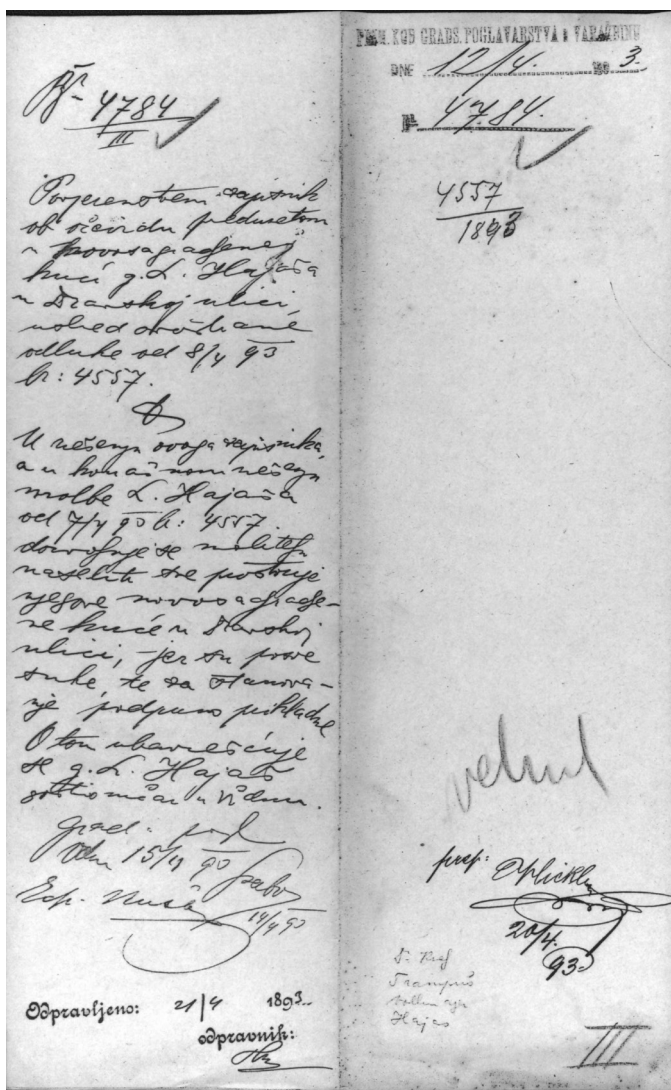 4784
III
Povjerenstveni zapisnik
ob očevidu preduzetom
u novosagrađenoj
kući g. L. Hajaša
u Dravskoj ulici,
usled
odluke od 8/4 93
br: 4557.
U rešenju ovoga zapisnika,
a u konačnom rešenju
molbe L. Hajaša
od 7/4 93 br: 4557.
dozvoljuje se molitelju
naseliti sve prostorije
njegove novosagradje-
ne kuće u Dravskoj
ulici, jer su posve
suhe, te za stanova-
nje podpuno prikladne
O tom ubaviešćuje
se g. L. Hajaš
u Vždinu.
Grad. pogl.
Vdin 15/4 93
14/4 93
Odpravljeno: 21/4 1893.
odpravnik:
PRIM. KOD GRADS. POGLAVARSTVA u VARAŽDINU
DNE 12/4. 1893.
Br. 4784.
4557
1893
vehnt
prep:
20/4.
93.
Hajas
III